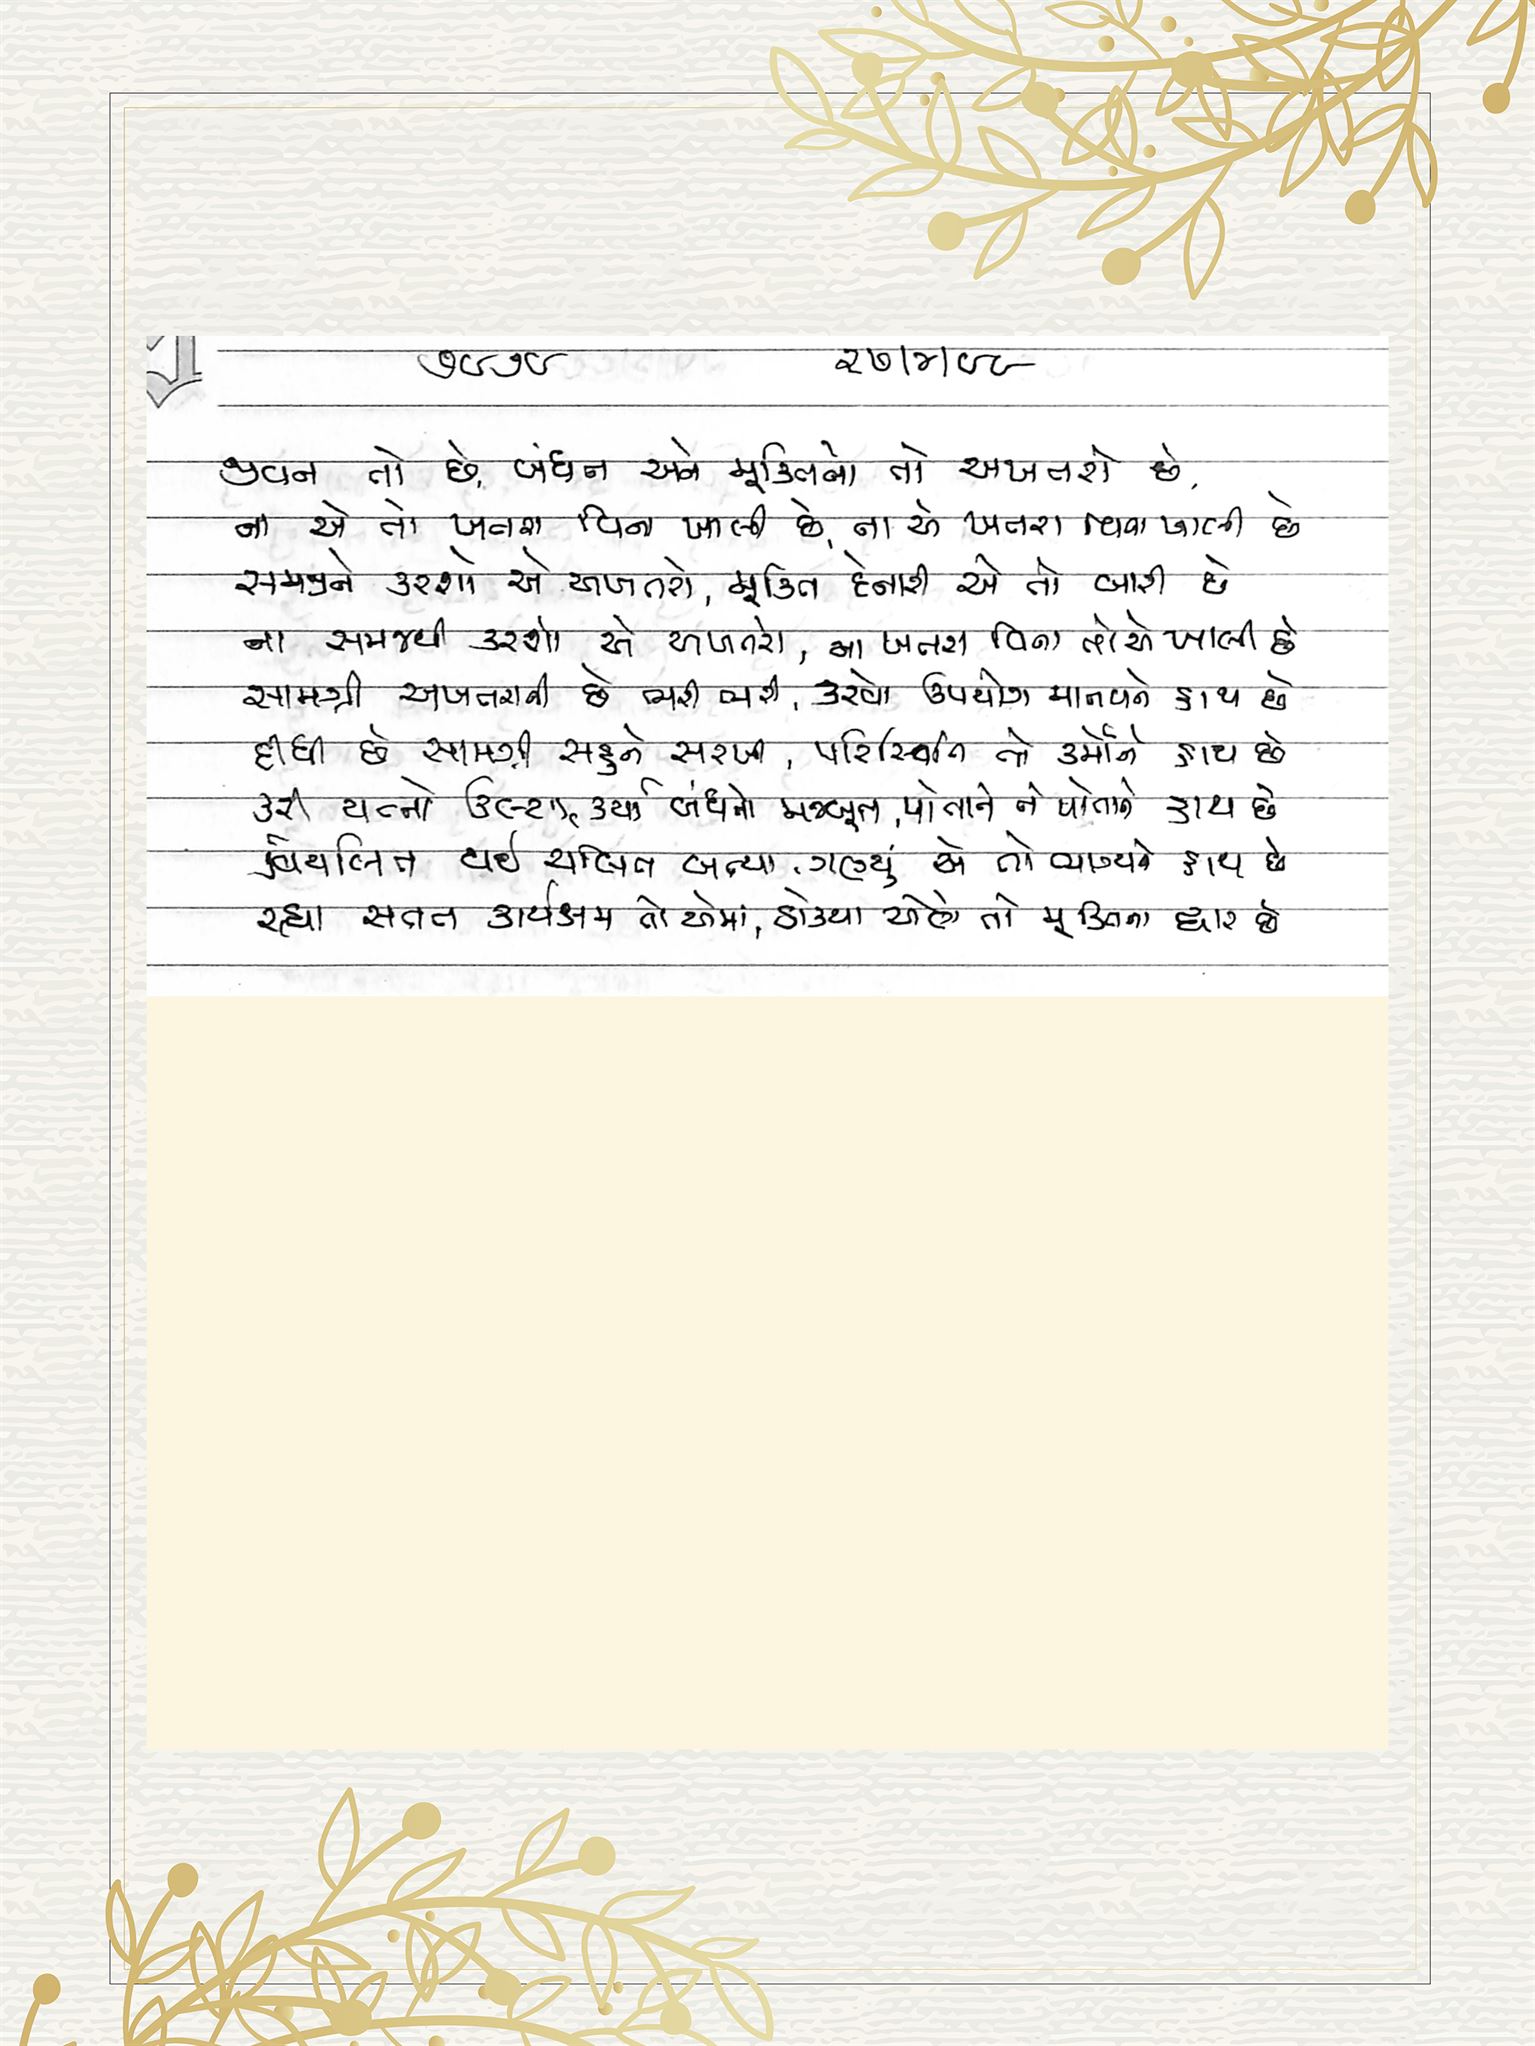 ૭૯૭૯ ૨૭/૪/૯૯
જીવન તો છે, બંધન અને મૂક્તિનો તો અખતરો છે,
ના એ તો ખતરા વિના ખાલી છે, ના એ ખતરા વિના ખાલી છે
સમજીને કરશો એ અખતરો, મૂક્તિ દેનારી એ તો બારી છે
ના સમજથી કરશો એ અખતરો, ના ખતરા વિના તો એ ખાલી છે
સામગ્રી અખતરાની છે ભરી ભરી, કરવો ઉપયોગ માનવને હાથ છે
દીધી છે સામગ્રી સહુને સરખી, પરિસ્થિતિ તો કર્મોને હાથ છે
કરી યત્નો ઉલ્ટા, કર્યા બંધનો મજબૂત, પોતાને ને પોતાને હાથ છે
વિચલિત થઈ ચલિત બન્યા, ગણ્યું એ તો ભાગ્યને હાથ છે
રહ્યા સતત કાર્યક્ષમ તો એમાં, ઠોક્યા એણે તો મૂક્તિના દ્વાર છે